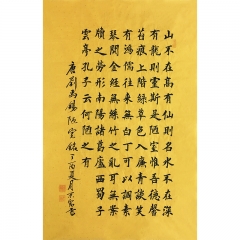 山不在高有仙則名水不在深
有龍則靈斯是陋室惟吾德馨
苔痕上階綠草色入簾青談笑
有鴻儒往來無白丁可以調素
琴閱金經無絲竹之亂耳無案
牘之勞形南陽諸葛廬西蜀子
雲亭孔子云何陋之有
唐劉禹錫陋室銘丁酉夏月書